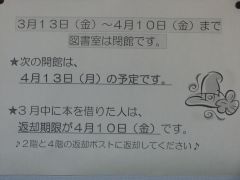 ３月１３日（金）～４月１０日（金）まで
図書室は閉館です。
★次の開館は、
４月１３日（月）の予定です。
★３月中に本を借りた人は、
返却期限が４月１０日（金）です。
♪２階と４階の返却ポストに返却してください♪